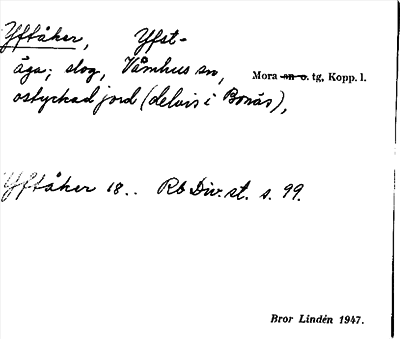 Yftåker, Yfst-
åga; slog, Våmhus sn, Mora sn o. tg, Kopp. l.
ostyckad jord (delvis i Bonäs),
Yftåker 18.. Rb Div. st. s. 99.
Bror Lindén 1947.